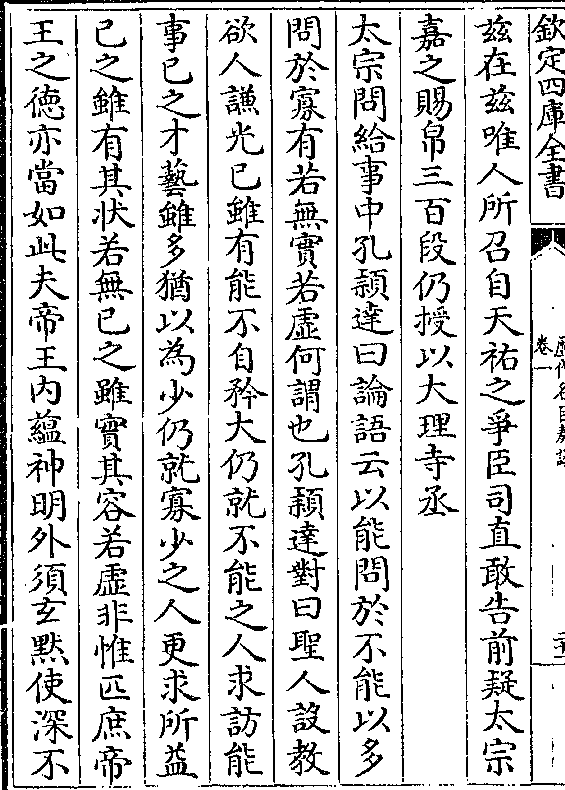 欽定四庫全書
卷一
茲在茲唯人所召自天祐之爭臣司直敢告前疑太宗
嘉之賜帛三百段仍授以大理寺丞
太宗問給事中孔穎達曰論語云以能問於不能以多
問於寡有若無實若虛何謂也孔穎達對曰聖人設敎
欲人謙光已雖有能不自矜大仍就不能之人求訪能
事已之才藝雖多猶以為少仍就寡少之人更求所益
已之雖有其狀若無已之雖實其容若虛非惟匹庶帝
王之徳亦當如此夫帝王内蘊神明外須玄黙使深不